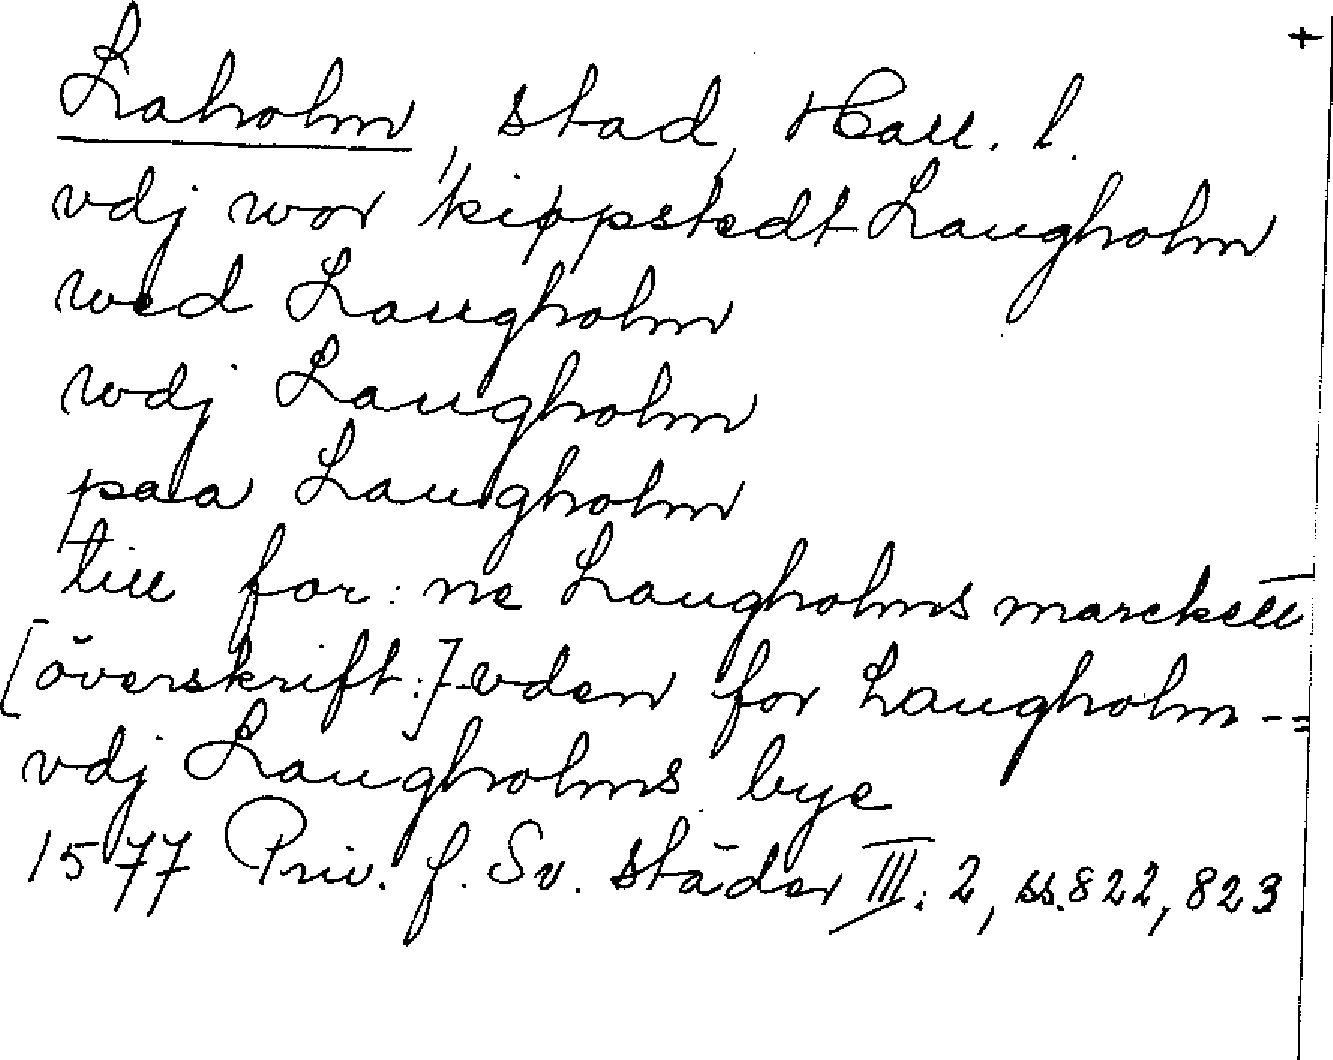 +
Laholm, stad, Hall. l.
vdj wor kippstedt Laugholm
wed Laugholm
wdj Laugholm
paa Laugholm
till for: ne Laugholms marckett
[överskrift:] vden for Laugholm --
vdj Laugholms bye
1577 Priv. f. Sv. städer III: 2, ss. 822, 823